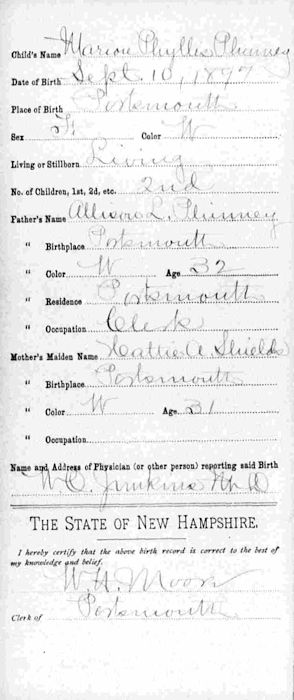 Child's Name Marion Phyllis Phinney
Date of Birth Sept. 10, 1897
Place of Birth Portsmouth
Sex F Color W
Living or Stillborn Living
No. of Children, 1st, 2d, etc. 2nd
Father's Name Allison L. Phinney
" Birthplace Portsmouth
" Color W Age 32
" Residence Portsmouth
" Occupation Clerk
Mother's Maiden Name Hattie A. Shields
" Birthplace Portsmouth
" Color W Age 31
" Occupation
Name and Address of Physician (or other person) reporting said Birth
W. O. Junkins M.D
THE STATE OF NEW HAMPSHIRE.
I hereby certify that the above birth record is correct to the best of
my knowledge and belief.
W. H. Moore
Clerk of Portsmouth